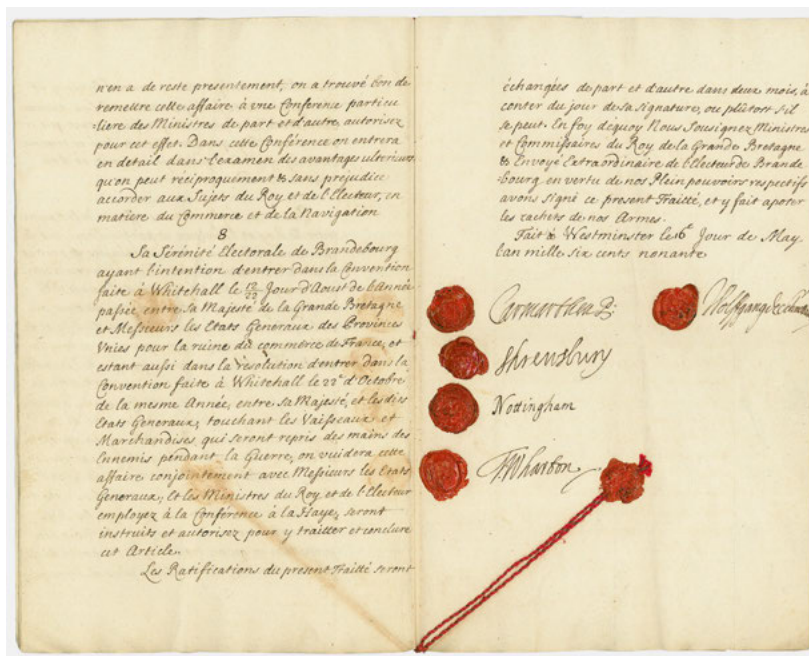 n'en a de reste presentement, on a trouvé bon de
remettre cette affaire à une Conference particu
:liere des Ministres de part et d'autre, autorisez
pour cet effet. Dans cette Conférence on entrera
en detail dans l'examen des avantages ulterieurs
qu'on peut réciproquement & sans prejudice
accorder aux Sujets du Roy et de l'Electeur, en
matiére du Commerce et de la Navigation
8
Sa Sérénité Electorale de Brandebourg
ayant l'intention d'entrer dans la Convention
faite à Whitehall le 12/22 Jour d'Aoust de l'Année
passée entre Sa Majesté de la Grande Bretagne
et Messieurs les Etats Generaux des Provinces
Unies pour la ruine du commerce de France, et
estant aussi dans la resolution d'entrer dans la
Convention faite à Whitehall le 22e d'Octobre
de la mesme Année, entre Sa Majesté, et les dits
Etats Generaux, touchant les Vaisseaux et
Marchandises qui seront repris des mains des
Ennemis pendant la Guerre, on vuidera cette
affaire conjointement avec Messieurs les Etats
Generaux, Et les Ministres du Roy, et de l'Electeur
employez à la Conférence à la Haye, seront
instruits et autorisez pour y traitter et conclure
cet Article.
Les Ratifications du present Traitté seront
échangées de part et d'autre dans deux mois, à
conter du jour de sa signature, ou plûtost s'il
se peut. En foy dequoy Nous Sousignez Ministres
et Commissaires du Roy de la Grande Bretagne
& Envoyé Extraordinaire de l'Electeur de Brande
:bourg en vertu de nos Plein pouvoirs respectifs
avons signé ce present Traitté, et y fait aposer
les cachets de nos Armes.
Fait à Westminster le 16e Jour de May
l'an mille six cents nonante
Carmarthen P:
Wolfgang de
Shrewsbury
Nottingham
T Wharton